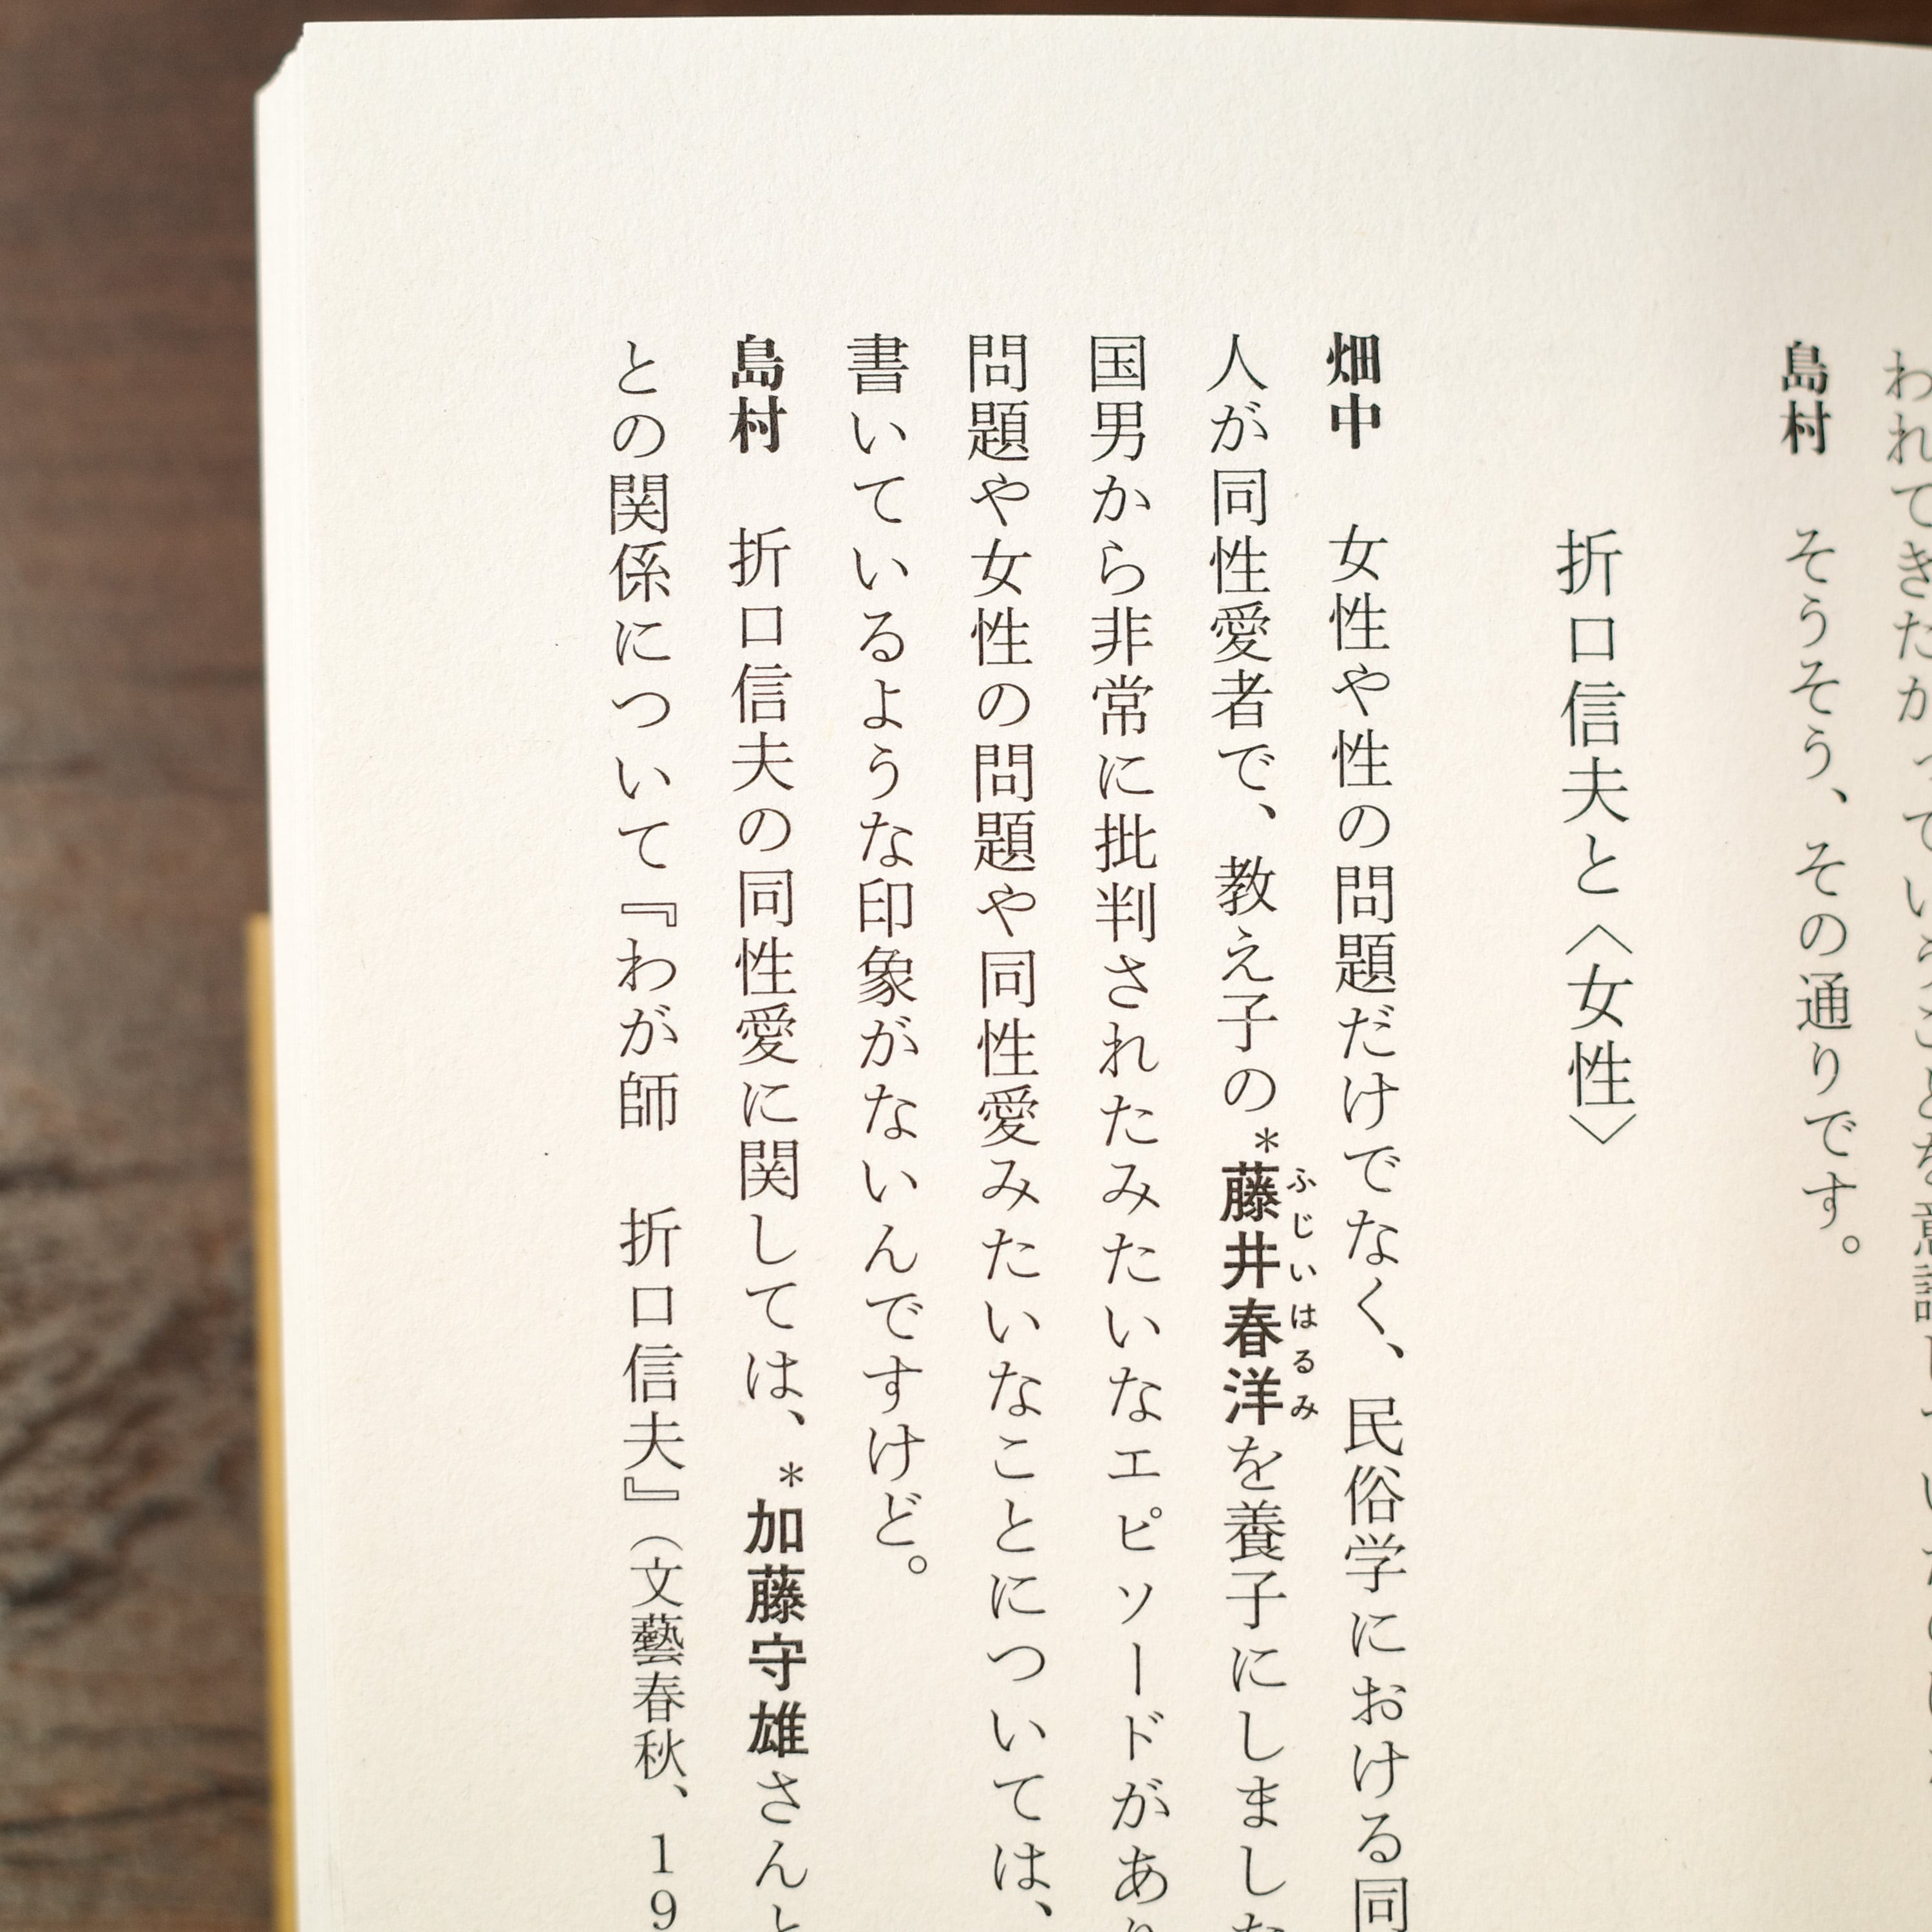 島村　そうそう、その通りです。
折口信夫と〈女性〉
畑中　女性や性の問題だけでなく、民俗学における同
人が同性愛者で、教え子の*藤井春洋を養子にしまし
ふじいはるみ
国男から非常に批判されたみたいなエピソードがあ
問題や女性の問題や同性愛みたいなことについては、
書いているような印象がないんですけど。
島村　折口信夫の同性愛に関しては、*加藤守雄さんと
との関係について『わが師　折口信夫』（文藝春秋、19